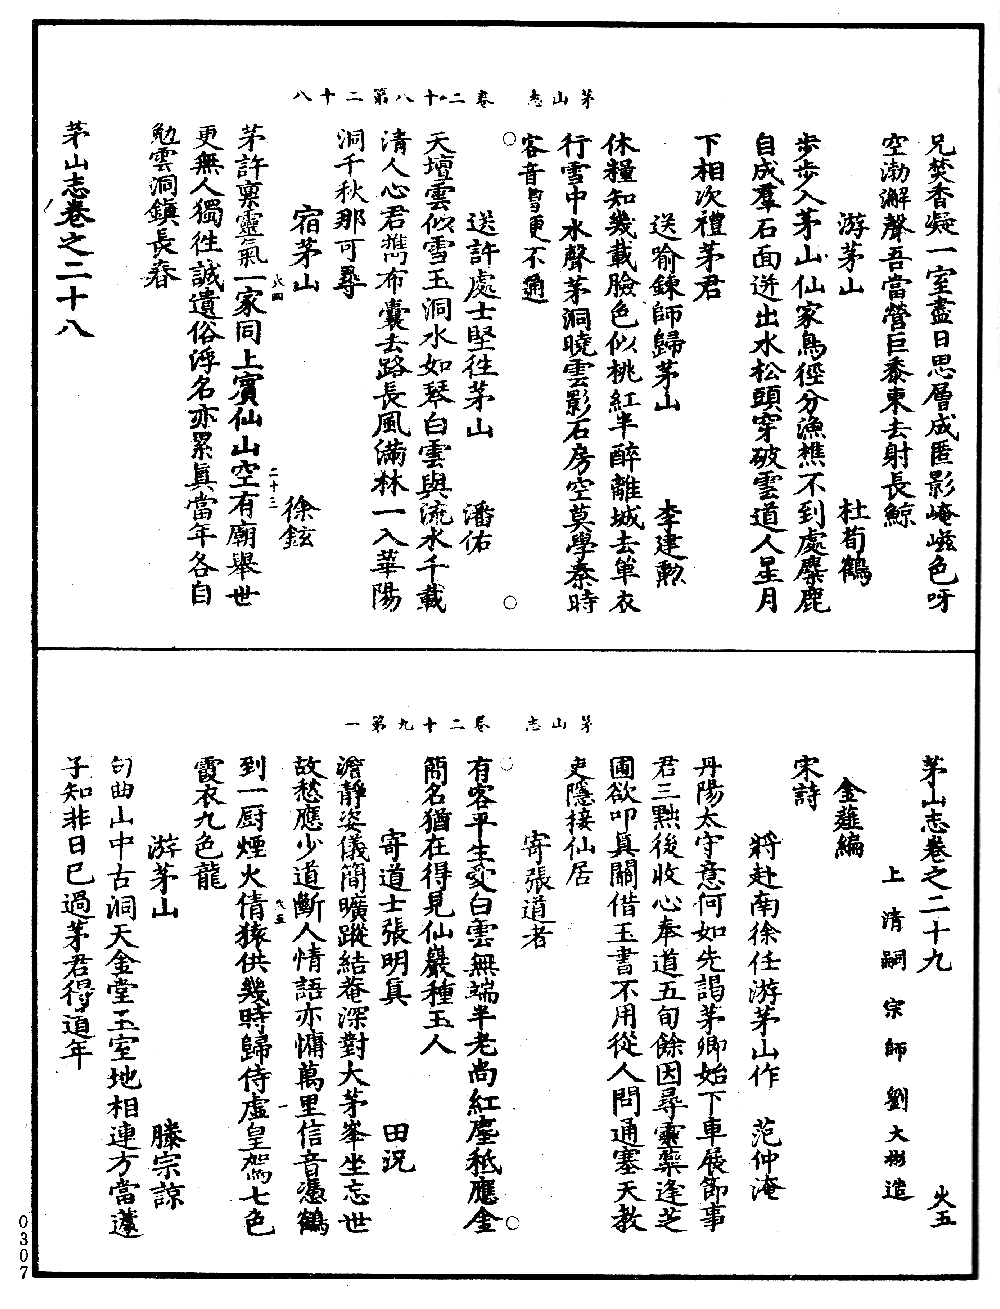 茅山志　卷二十八第二十八
兄焚香凝一室盡日思層成匿影崦嵫色呀
空渤澥聲吾當營巨黍東去射長鯨
游茅山　杜荀鶴
步步入茅山仙家鳥徑分漁樵不到處麋鹿
自成羣石面迸出水松頭穿破雲道人星月
下相次禮茅君
送喻鍊師歸茅山　李建勲
休糧知幾載臉色似桃紅半醉離城去單衣
行雪中水聲茅洞曉雲影石房空莫學秦時
客音書更不通
送許處士堅徃茅山　潘佑
天壇雲似雪玉洞水如琴白雲與流水千載
清人心君攜布囊去路長風滿林一入華陽
洞千秋那可尋
宿茅山　徐鉉
茅許稟靈氣一家同上賓仙山空有廟舉世
更無人獨徃誠遺俗浮名亦累真當年各自
勉雲洞鎮長春
火四
二十三
茅山志卷之二十八
茅山志　卷二十九第一
茅山志卷之二十九　火五
上清嗣宗師劉大彬造
金薤編
宋詩
將赴南徐任游茅山作　范仲淹
丹陽太守意何如先謁茅卿始下車展節事
君三黜後收心奉道五旬餘因尋靈藥逢芝
圃欲叩真關借玉書不用從人問通塞天教
吏隱接仙居
寄張道者
有客平生愛白雲無端半老尚紅塵秪應金
簡名猶在得見仙巖種玉人
寄道士張明真　田況
澹靜姿儀簡曠蹤結菴深對大茅峯坐忘世
故愁應少道斷人情語亦慵萬里信音憑鶴
到一厨煙火倩猿供幾時歸侍虛皇駕七色
霞衣九色龍
火五
一
游茅山　滕宗諒
句曲山中古洞天金堂玉室地相連方當蘧
子知非日已過茅君得道年
0307